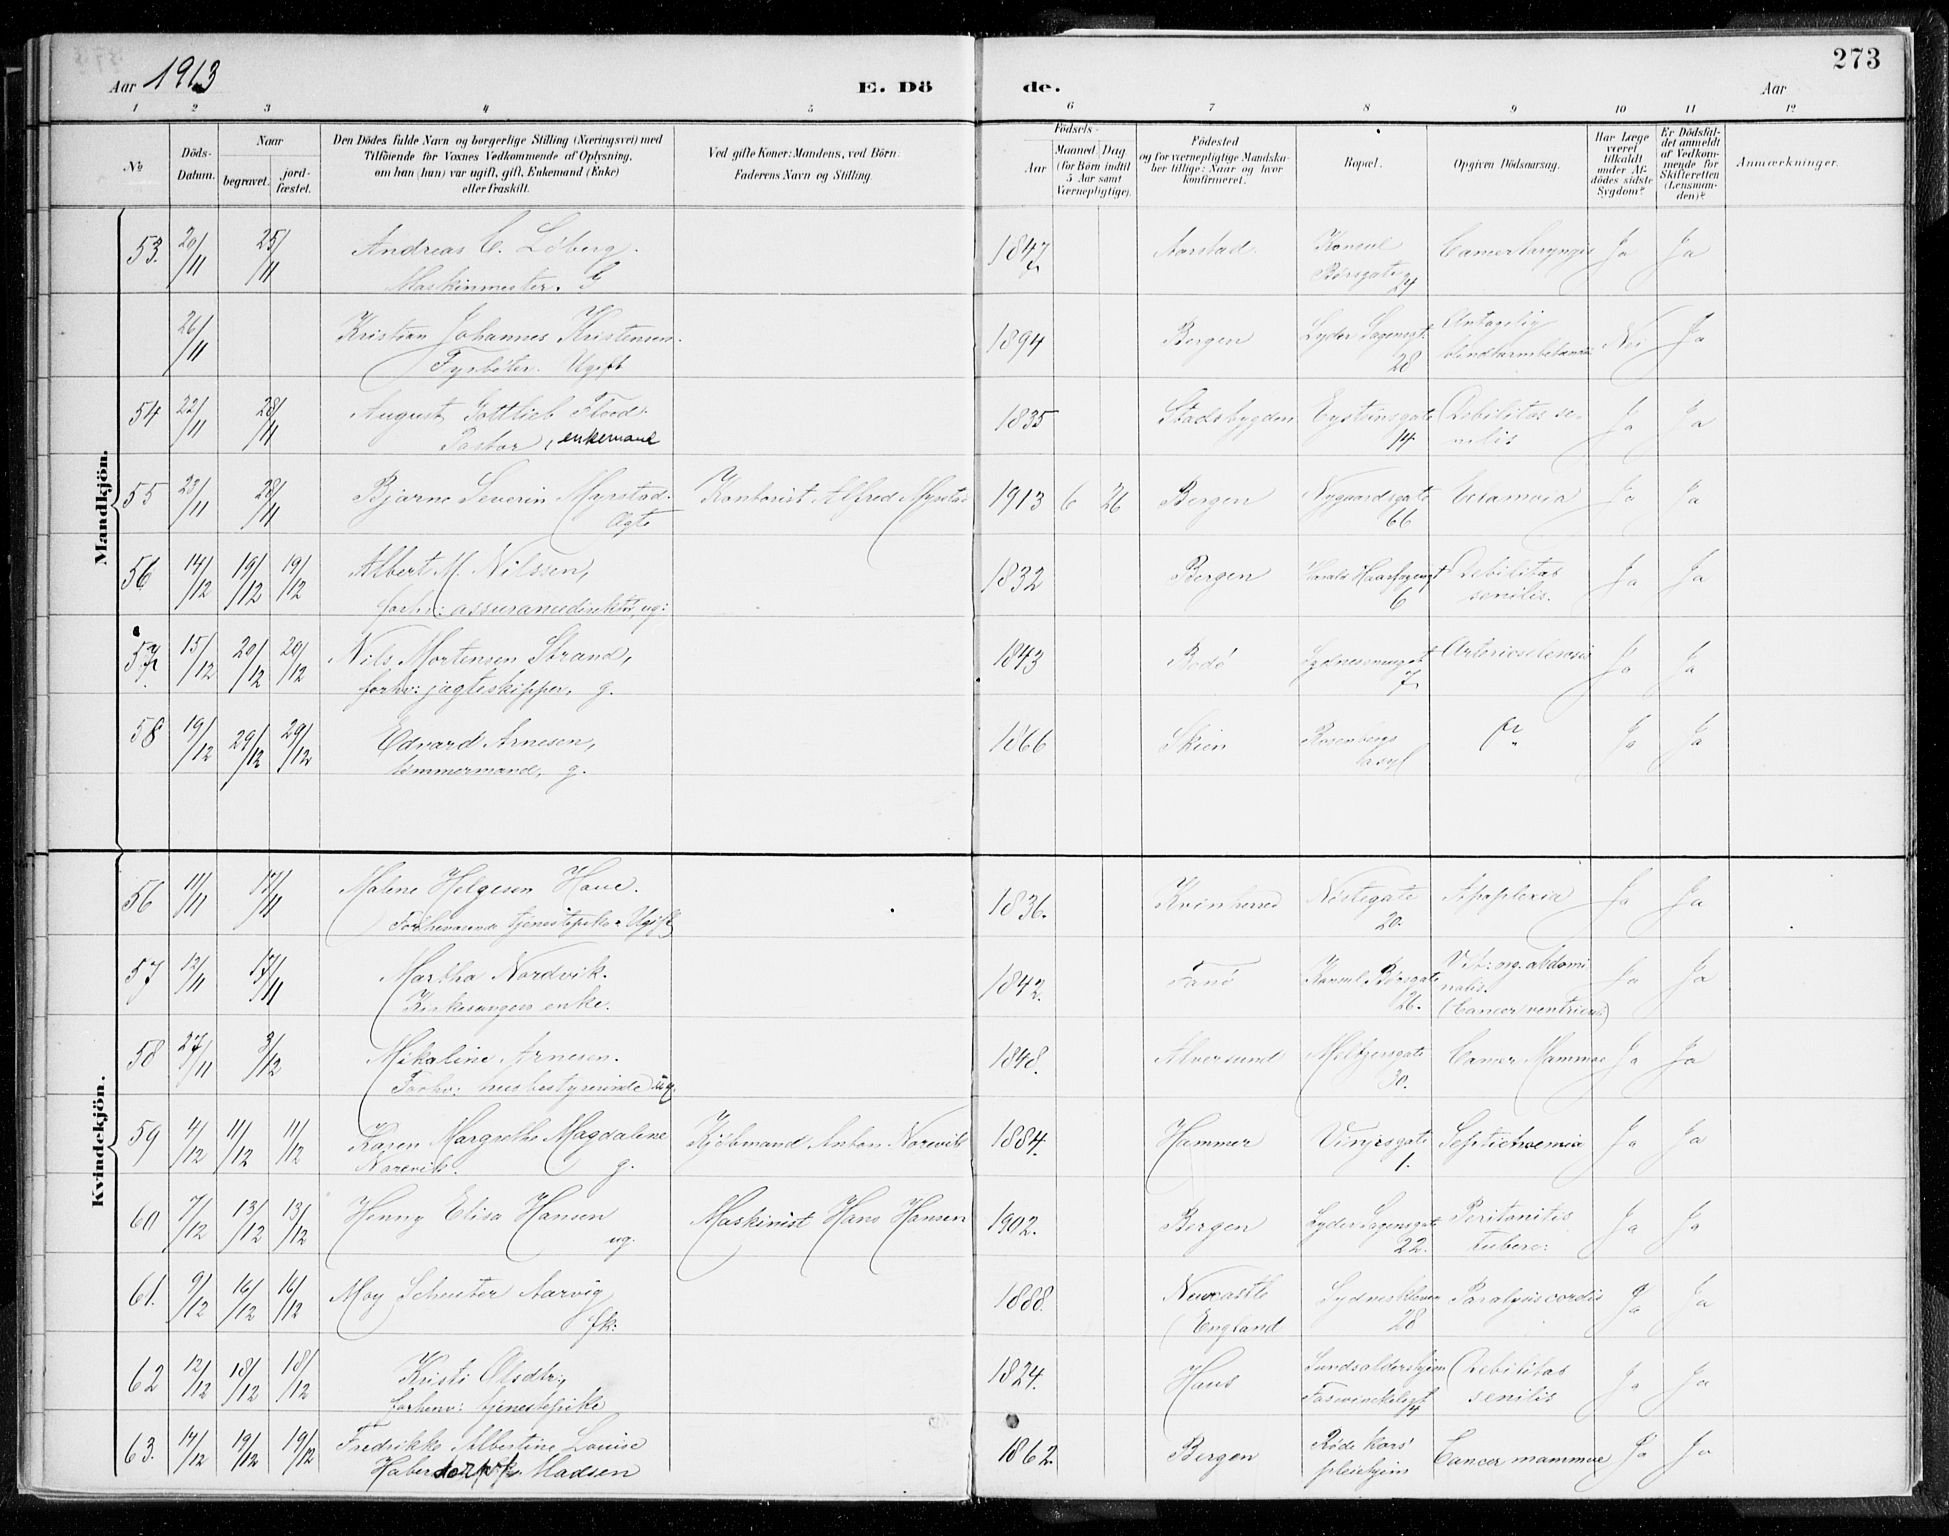 273
Aar 1913
E. Dö
de.
Aar
1 2 3 4 5 6 7 8 9 10 11 12
No
Döds-Datum.
Naar
begravet.
jordfæstet.
Den Dödes fulde Navn og borgerlige Stilling (Næringsvei) med
Tilföiende for Voxnes Vedkommende af Oplysning,
om han (hun) var ugift, gift, Enkemand (Enke)
eller fraskilt.
Ved gifte Koner: Mandens, ved Börn:
Faderens Navn og Stilling.
Födsels-
Aar
Maaned Dag
(for Börn indtil
5 Aar samt
Værnepligtige).
Födested
og for værnepligtige Mandska-
ber tillige: Naar og hvor
konfirmeret.
Bopæl.
Opgiven Dödsaarsag.
Har Læge
været
tilkaldt
under Af-
dödes sidste
Sygdom?
Er Dödsfal-
det anmeldt
af Vedkom-
mende for
Skifteretten
(Lensman-
den)?
Anmærkninger.
Mandkjön.
53. 20/11 25/11 Andreas C. Löberg. 1847 Aarstad. Konsul Cancer laryngis Ja Ja
Maskinmester. G Börsgate 24
26/11 Kristian Johannes Kristensen. 1894 Bergen Lyder Sagensgt. Antagelig Nei Ja
Fyrböter. Ugift 28
54 22/11 28/11 August Gottlieb Flood. 1835 Stadsbygden Eysteinsgate Debilitas se- Ja Ja
Pastor, enkemand 14 nilis
55 23/11 28/11 Bjarne Severin Myrstad. Kontorist Alfred Myrstad 1913 6 26 Bergen Nygaardsgate Ja Ja
Ægte 66
56 14/12 19/12 19/12 Albert M. Nilssen, 1832 Bergen Harald Haarfagersgt Debilitas Ja Ja
forhv: assurancedirektör, ug: 6 senilis.
57. 15/12 20/12 20/12 Nils Mortensen Strand, 1843 Bodö 7 Ja Ja
forhv: jægteskipper, g.
58 19/12 29/12 29/12 Edvard Arnesen, 1866 Skien Rosenbergs Ja Ja
tömmermand, g. asyl
Kvindekjön.
56 11/11 17/11 Malene Helgesen Haue. 1836. Kvinherred Nöstegate Apoplexia Ja Ja
Forhenværende tjenestepike. Ugift 20.
57 12/11 17/11 Martha Nordvik. 1842. Fanö Konsul Börsgate Vit: org. abdomi Ja Ja
Kirkesangers enke. 26. nalis.
(Cancer ventriculi)
58 27/11 3/12 Mikaline Arnesen. 1848. Alversund Meltzersgate Cancer Mammae Ja Ja
Forhv: husbestyrerinde ug. 30.
59 4/12 11/12 11/12 Karen Margrethe Magdalene Kjöbmand Anton Norevik 1884. Hammer Vinjesgate Septichaemia Ja Ja
Norevik. g. 1.
60 7/12 13/12 13/12 Henny Elisa Hansen Maskinist Hans Hansen 1902. Bergen Lyder Sagensgate Peritonitis Ja Ja
ug. 22. tuberc:
61. 9/12 16/12 16/12 May Schuster Aarvig 1888. Newcastle Sydneskleven Paralysis cordis Ja Ja
fk: England 28
62 12/12 18/12 18/12 Kristi Olsdtr., 1824. Haus Debilitas Ja Ja
forhenv: tjenestepike 4 senilis
63. 14/12 19/12 19/12 Fredrikke Albertine Louise 1862. Bergen Röde kors' Cancer mammae Ja Ja
Madsen pleiehjem